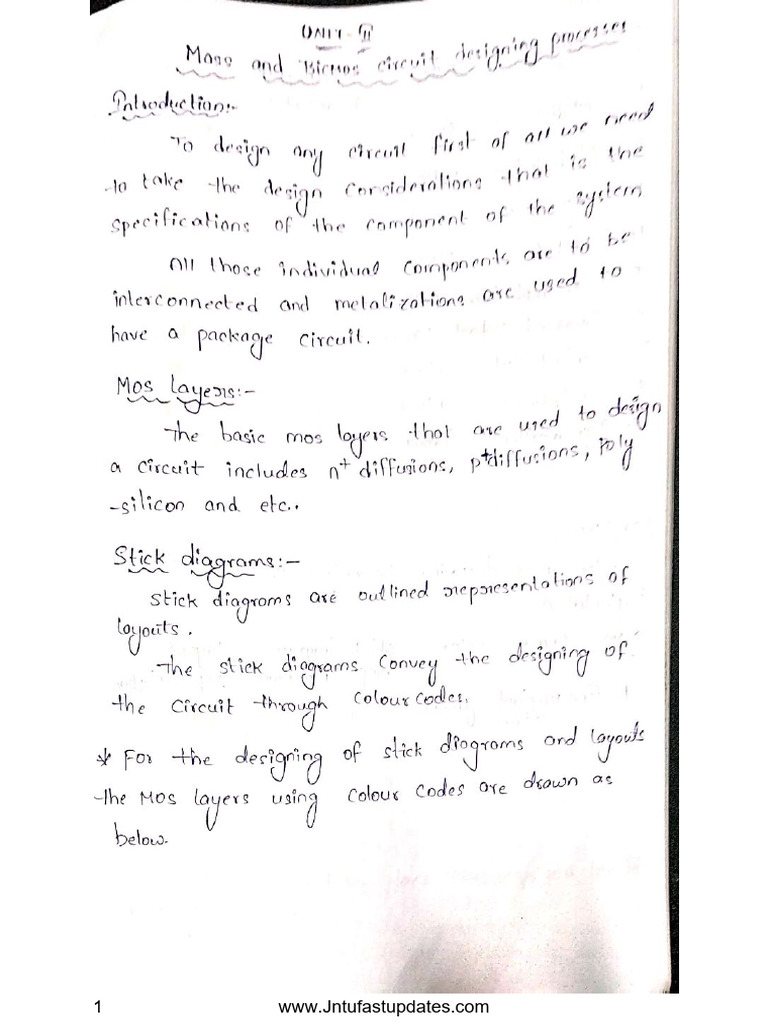 UNIT-II
Moss and Bicmos circuit designing processes
Introduction:-
To design any circuit first of all we need
to take the design Considerations that is the
specifications of the component of the system
All those individual components are to be
interconnected and metalizations are used to
have a package circuit.
Mos layers:-
The basic mos layers that are used to design
a circuit includes n+ diffusions, p+diffusions, poly
-silicon and etc..
Stick diagrams:-
Stick diagrams are outlined representations of
layouts.
The stick diagrams Convey the designing of
the circuit through colour codes.
* For the designing of stick diagrams and layouts
the MOS layers using colour codes are drawn as
below.
1 www.Jntufastupdates.com